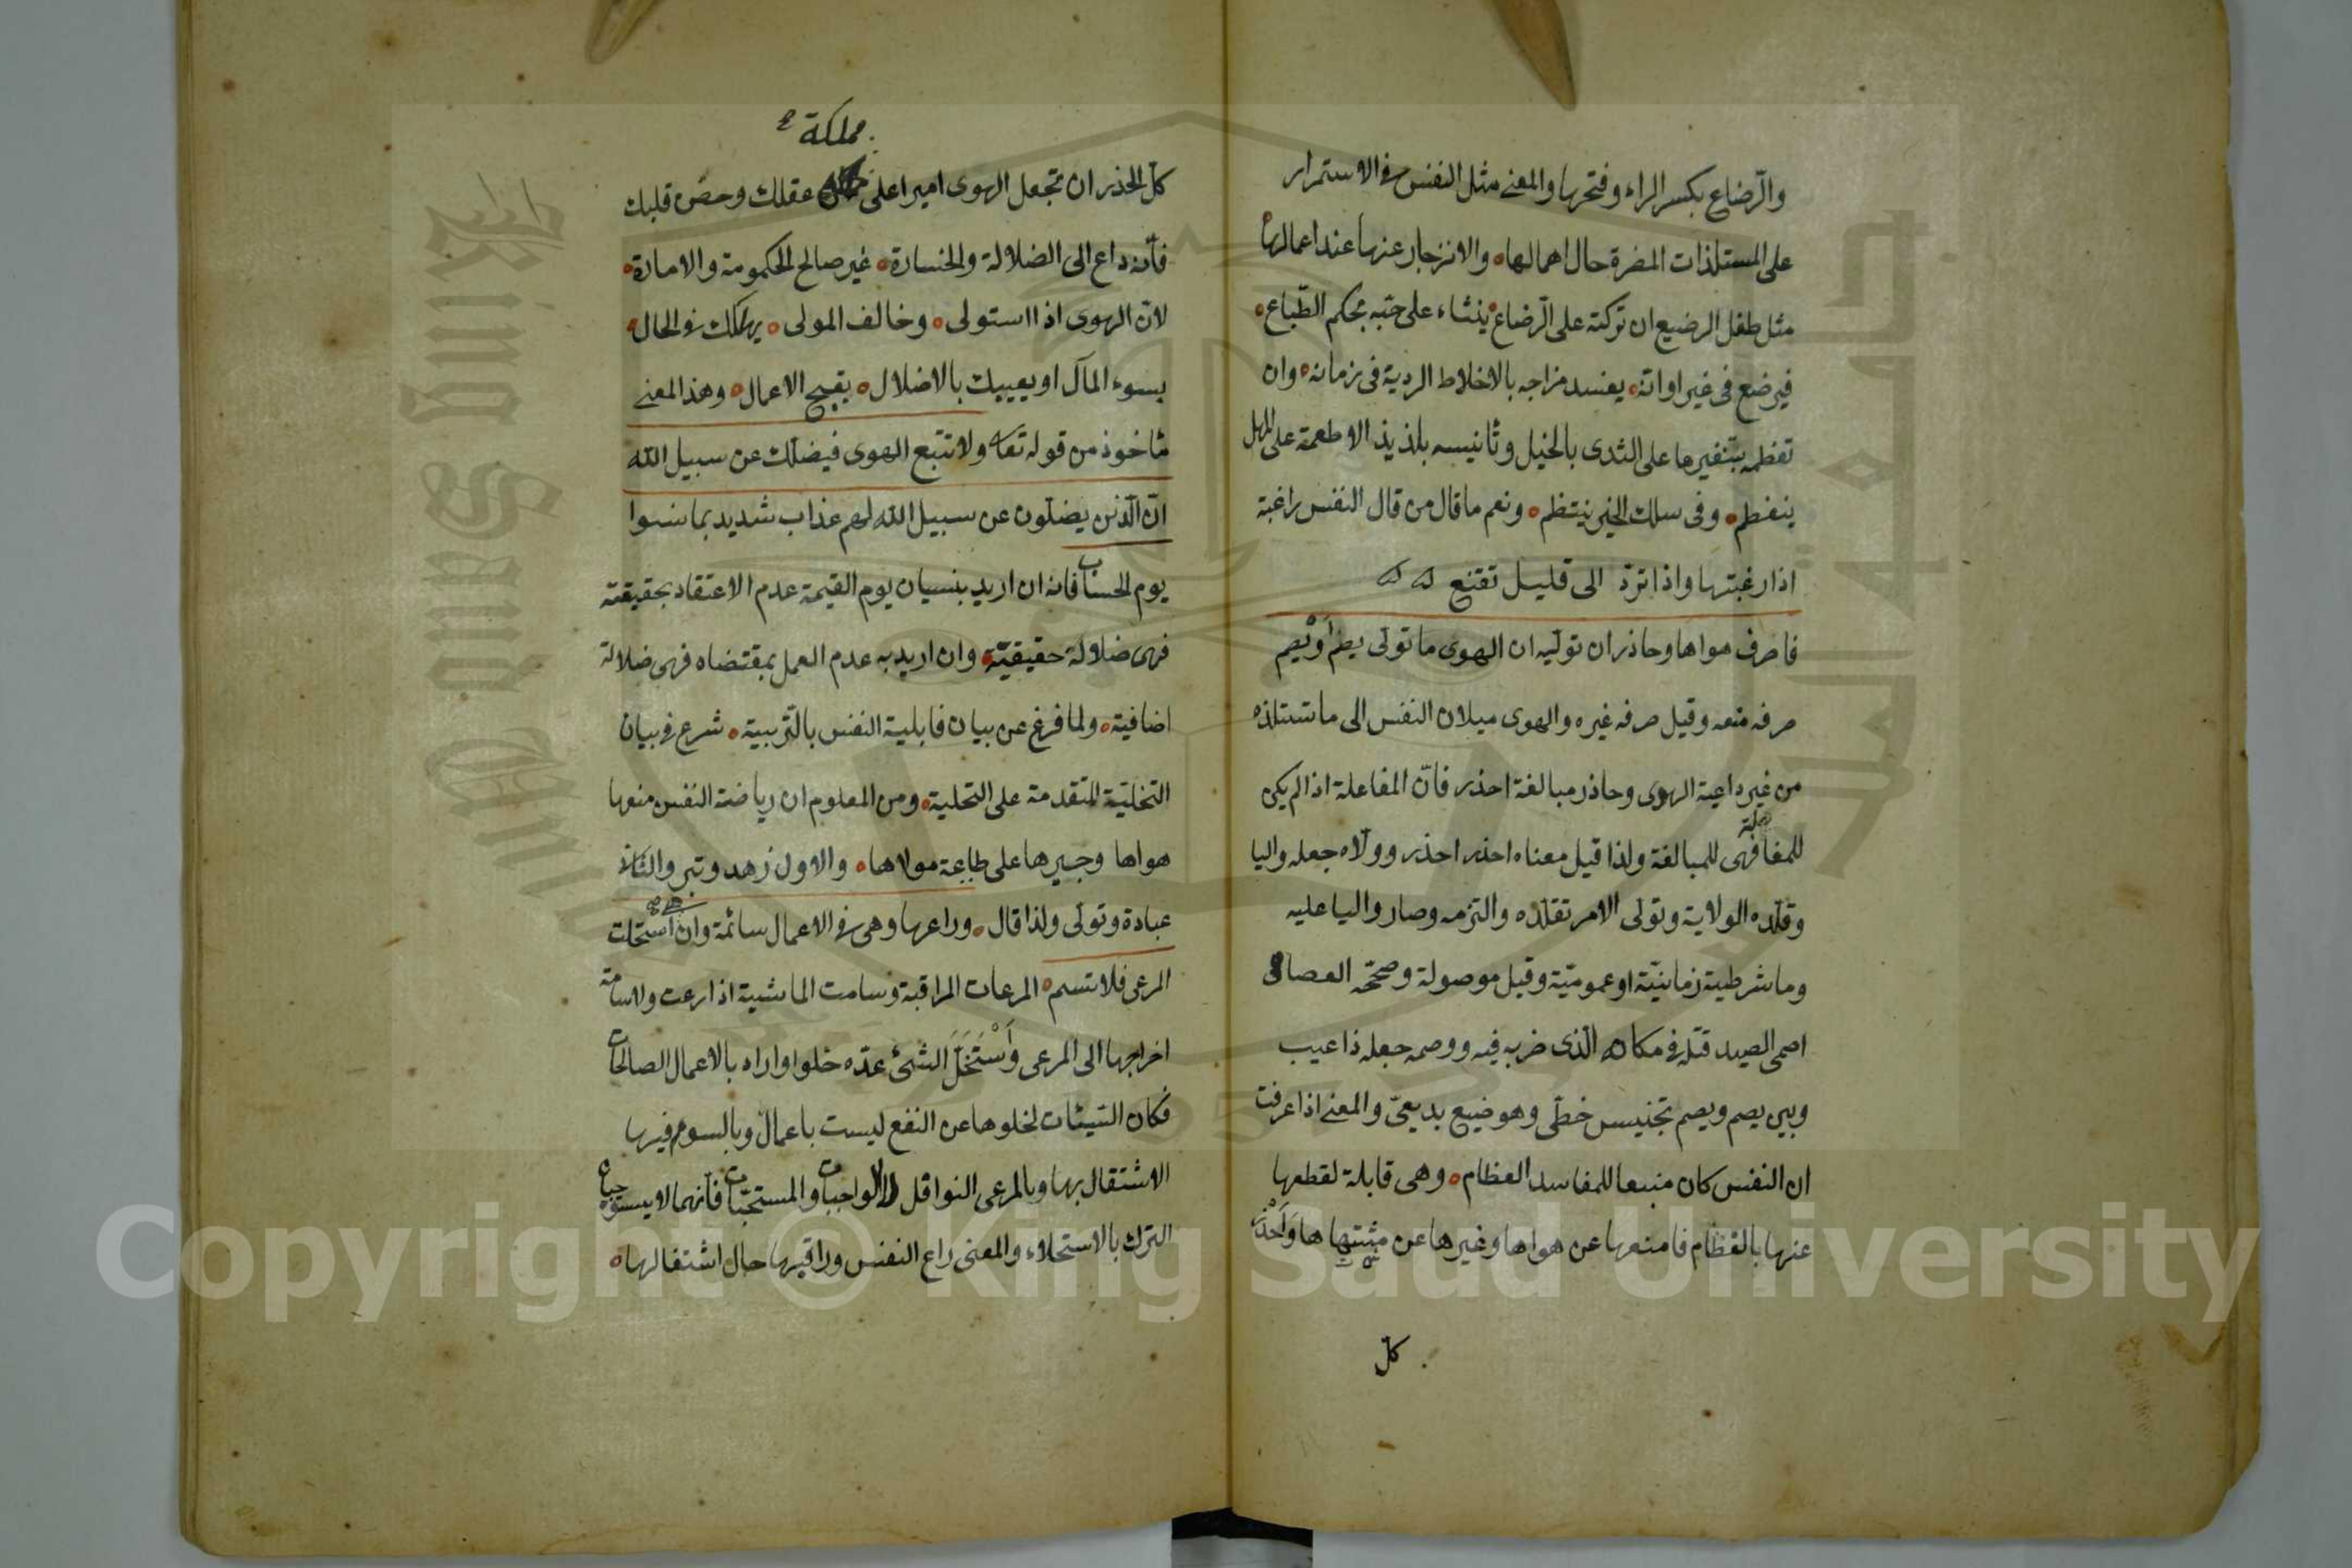 والرّضاع بكسر الراء وفتحها والمعنى مثل النفس في الاستمرار
على المستلذات المضرة حال اهمالها، والانزجار عنها عند اعمالها
مثل طفل الرضيع ان تركته على الرّضاع ينشاء على حبّه بحكم الطّباع،
فيرضع في غير اوانه، يفسد مزاجه بالاخلاط الردية في زمانه، وان
تفطمه بتنفيرها على الثدى بالخيل وتأنيسه بلذيذ الاطعمة على المهل
ينفطم، وفي سلك الخير ينتظم، ونعم ما قال من قال النفس راغبة
اذا رغبتها واذا تردّ الى قليل تقنع
فاصرف هواها وحاذر ان تولّيه ان الهوى ما تولى يصم اَوْ يصم
صرفه منعه وقيل صرفه غيره والهوى ميلان النفس الى ما تستلذه
من غير داعية الهوى وحاذر مبالغة احذر فانّ المفاعلة اذا لم يكن
للمغالبة فهى للمبالغة ولذا قيل معناه احذر احذر وولّاه جعله واليا
وقلّده الولاية وتولى الامر تقلّده والتزمه وصار واليا عليه
وما شرطية زمانيّة او عموميّة وقيل موصولة وصحّحه العصام
اصمى الصيد قتله في مكانه الّذى ضربه فيه ووصمه جعله ذا عيب
وبين يصم ويصم تجنيس خطّى وهو ضيع بديعىّ والمعنى اذا عرفت
ان النفس كان منبعا للمفاسد العظام، وهى قابلة لقطعها
عنها بالفطام فامنعها عن هواها وغيرها عن مثتهاها وَاَحْذَر
كلّ
مملكة
كلّ الحذر ان تجعل الهوى اميرا على عقلك وحصن قلبك
فانّه داع الى الضلالة والخسارة، غير صالح للحكمومة والامارة،
لانّ الهوى اذا استولى، وخالف المولى، يهلكك في الحال،
بسوء المآل او يعيبك بالاضلال، بقبيح الاعمال، وهذ المعنى
مأخوذ من قوله تعا ولا تتبع الهوى فيضلك عن سبيل الله
انّ الّذين يضلّون عن سبيل الله لهم عذاب شديد بما نسوا
يوم الحساب فانه ان اريد بنسيان يوم القيمة عدم الاعتقاد بحقيقته
فهى ضلالة حقيقيّة، وان اريد به عدم العمل بمقتضاه فهى ضلالة
اضافية، ولما فرغ عن بيان قابلية النفس بالتّربية، شرع في بيان
التخليّة المتقدمة على التحلية، ومن المعلوم ان رياضة النفس منعها
هواها وجبرها على طاعة مولاها، والاول زهد وتبر والثانى
عبادة وتولّى ولذا قال، وراعها وهى في الاعمال سائمة وان هى استحلت
المرعى فلا تسم، المرعات المراقبة وسامت الماشية اذا رعت والاسامة
اخراجها الى المرعى وَاَسْتَحَلَّ الشئ عدّه حلوا واراد بالاعمال الصالحات
فكان السّيئات لخلوها عن النفع ليست باعمال وبالسوم فيها
الاشتقال بها وبالمرعى النوافل لا الواجبات والمستحبّات فانّهما لا يستوجبا
الترك بالاستحلاء والمعنى راع النفس وراقبها حال اشتغالها،
Copyright © King Saud University